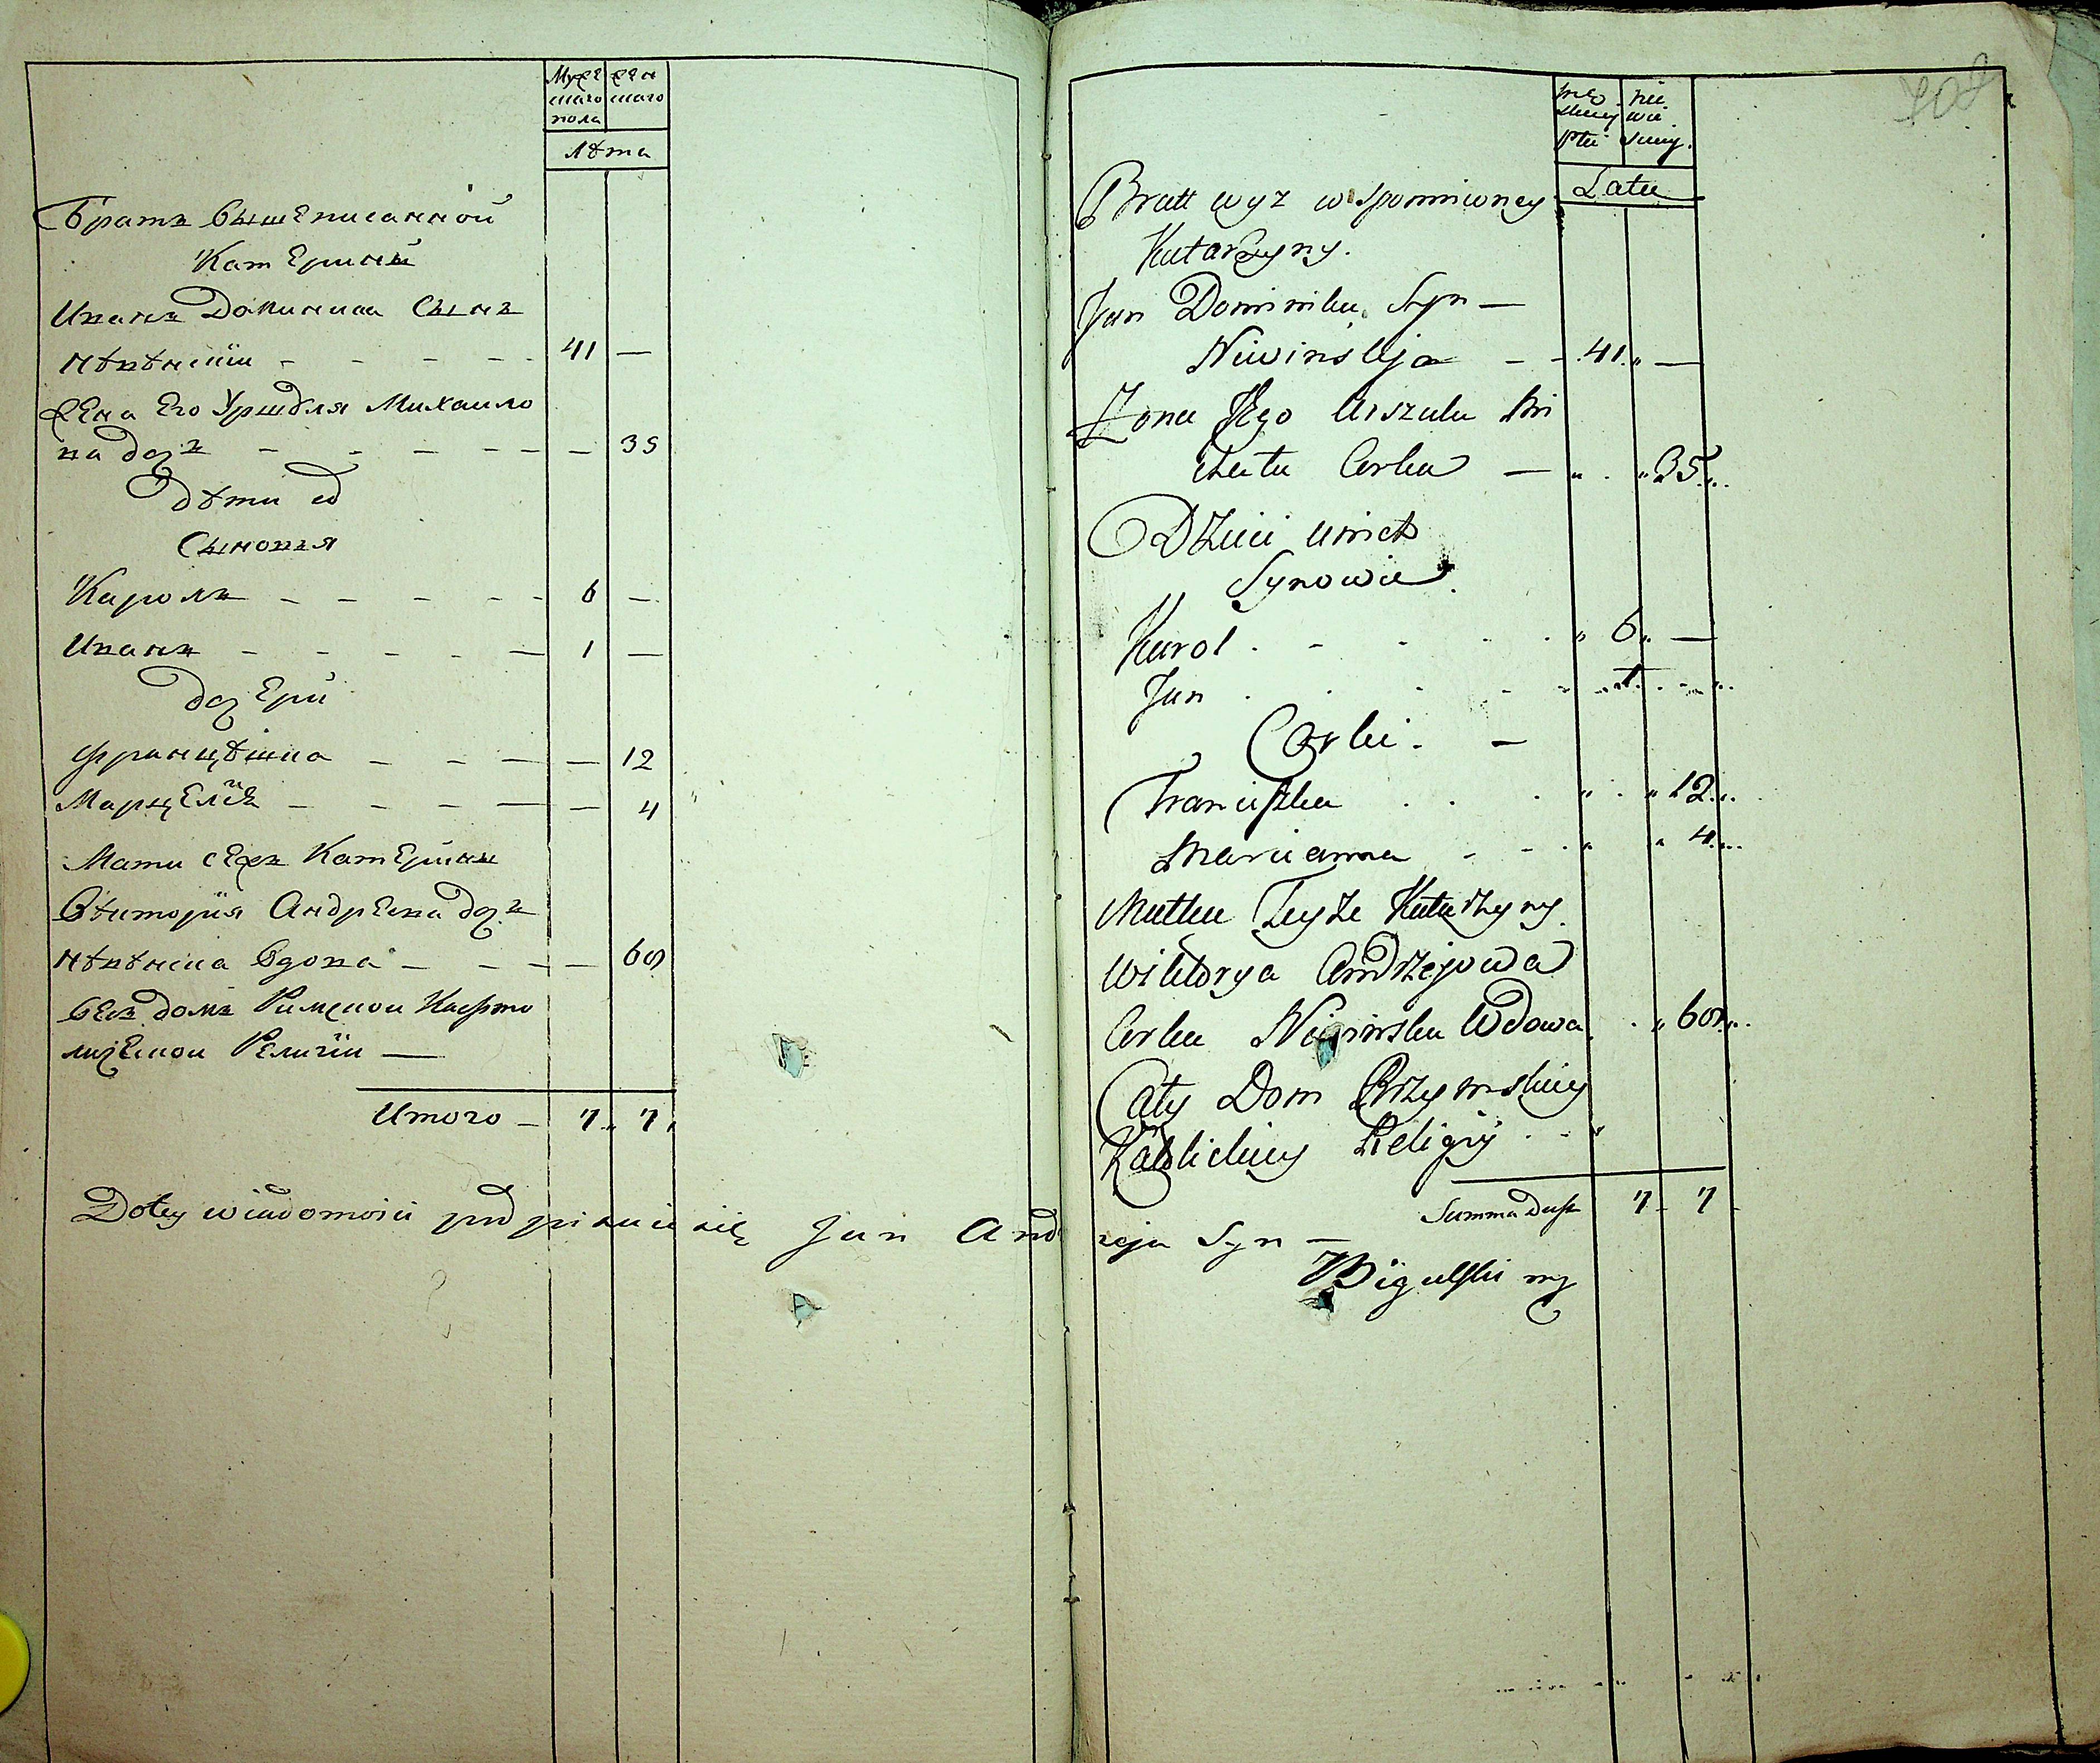 Муже
скаго
пола
жен
скаго
Лѣта
Братъ вышеписанной
Катерины
Иванъ Доминика Сынъ
Нѣвѣнскiи - - - - - 41 —
Жена Его Уршуля Михаило
ва дочъ - - - - - — 35
Дѣти ихъ
Сыновья
Кароль - - - - - 6 —
Иванъ - - - - — 1 —
дочери
Францѣшка - - - — 12
Марцеля - - - — — 4
Мати сеяжъ Катерины
Вѣкторiя Андреева дочъ
Нѣвѣнска вдова - - - — 60
весь домъ Римской Като
лической Религiи —
Итого - 7 7
mę
skiey
Płci
nie
wie
sciey.
Lata
Bratt wyz wspomniwney
Katarzyny.
Jan Dominika Syn —
Niewinskja - - 41 „ —
Żona Jego Urszula Mi
chała Corka — „ . „ 35
Dzieci unich
Synowie.
Karol . - - . . „ 6 „ —
Jan . . - - - 1 - -
Corki. —
Franciszka . . . „ . „ 12
Marcianna - - . „ „ 4
Matka Teyże Katarzyny
Wiktorya Andrzejowa
Corka Niewinska Wdowa . „ 60
Cały Dom Rzymskiey
Katolickiey Religij . - „
Summa Dusz 7 - 7 -
Dotey wiadomosci podpisuie się Jan Andrzeja Syn —
Bigulski mp